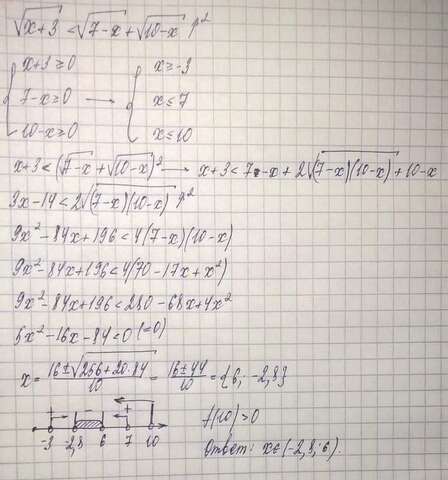 √(x+3) < √(7-x) + √(10-x) p²
{ x+3 ≥ 0 { x ≥ -3
{ 7-x ≥ 0 → { x ≤ 7
{ 10-x ≥ 0 { x ≤ 10
x+3 < (√(7-x) + √(10-x))² → x+3 < 7-x + 2√((7-x)(10-x)) + 10-x
3x-14 < 2√((7-x)(10-x)) p²
9x²-84x+196 < 4(7-x)(10-x)
9x²-84x+196 < 4(70-17x+x²)
9x²-84x+196 < 280-68x+4x²
5x²-16x-84 < 0 (=0)
x = (16±√(256+20·84))/10 = (16±44)/10 = {6; -2,8}
+ - +
-3 -2,8 6 7 10
f(10) > 0
Ответ: x∈(-2,8; 6).